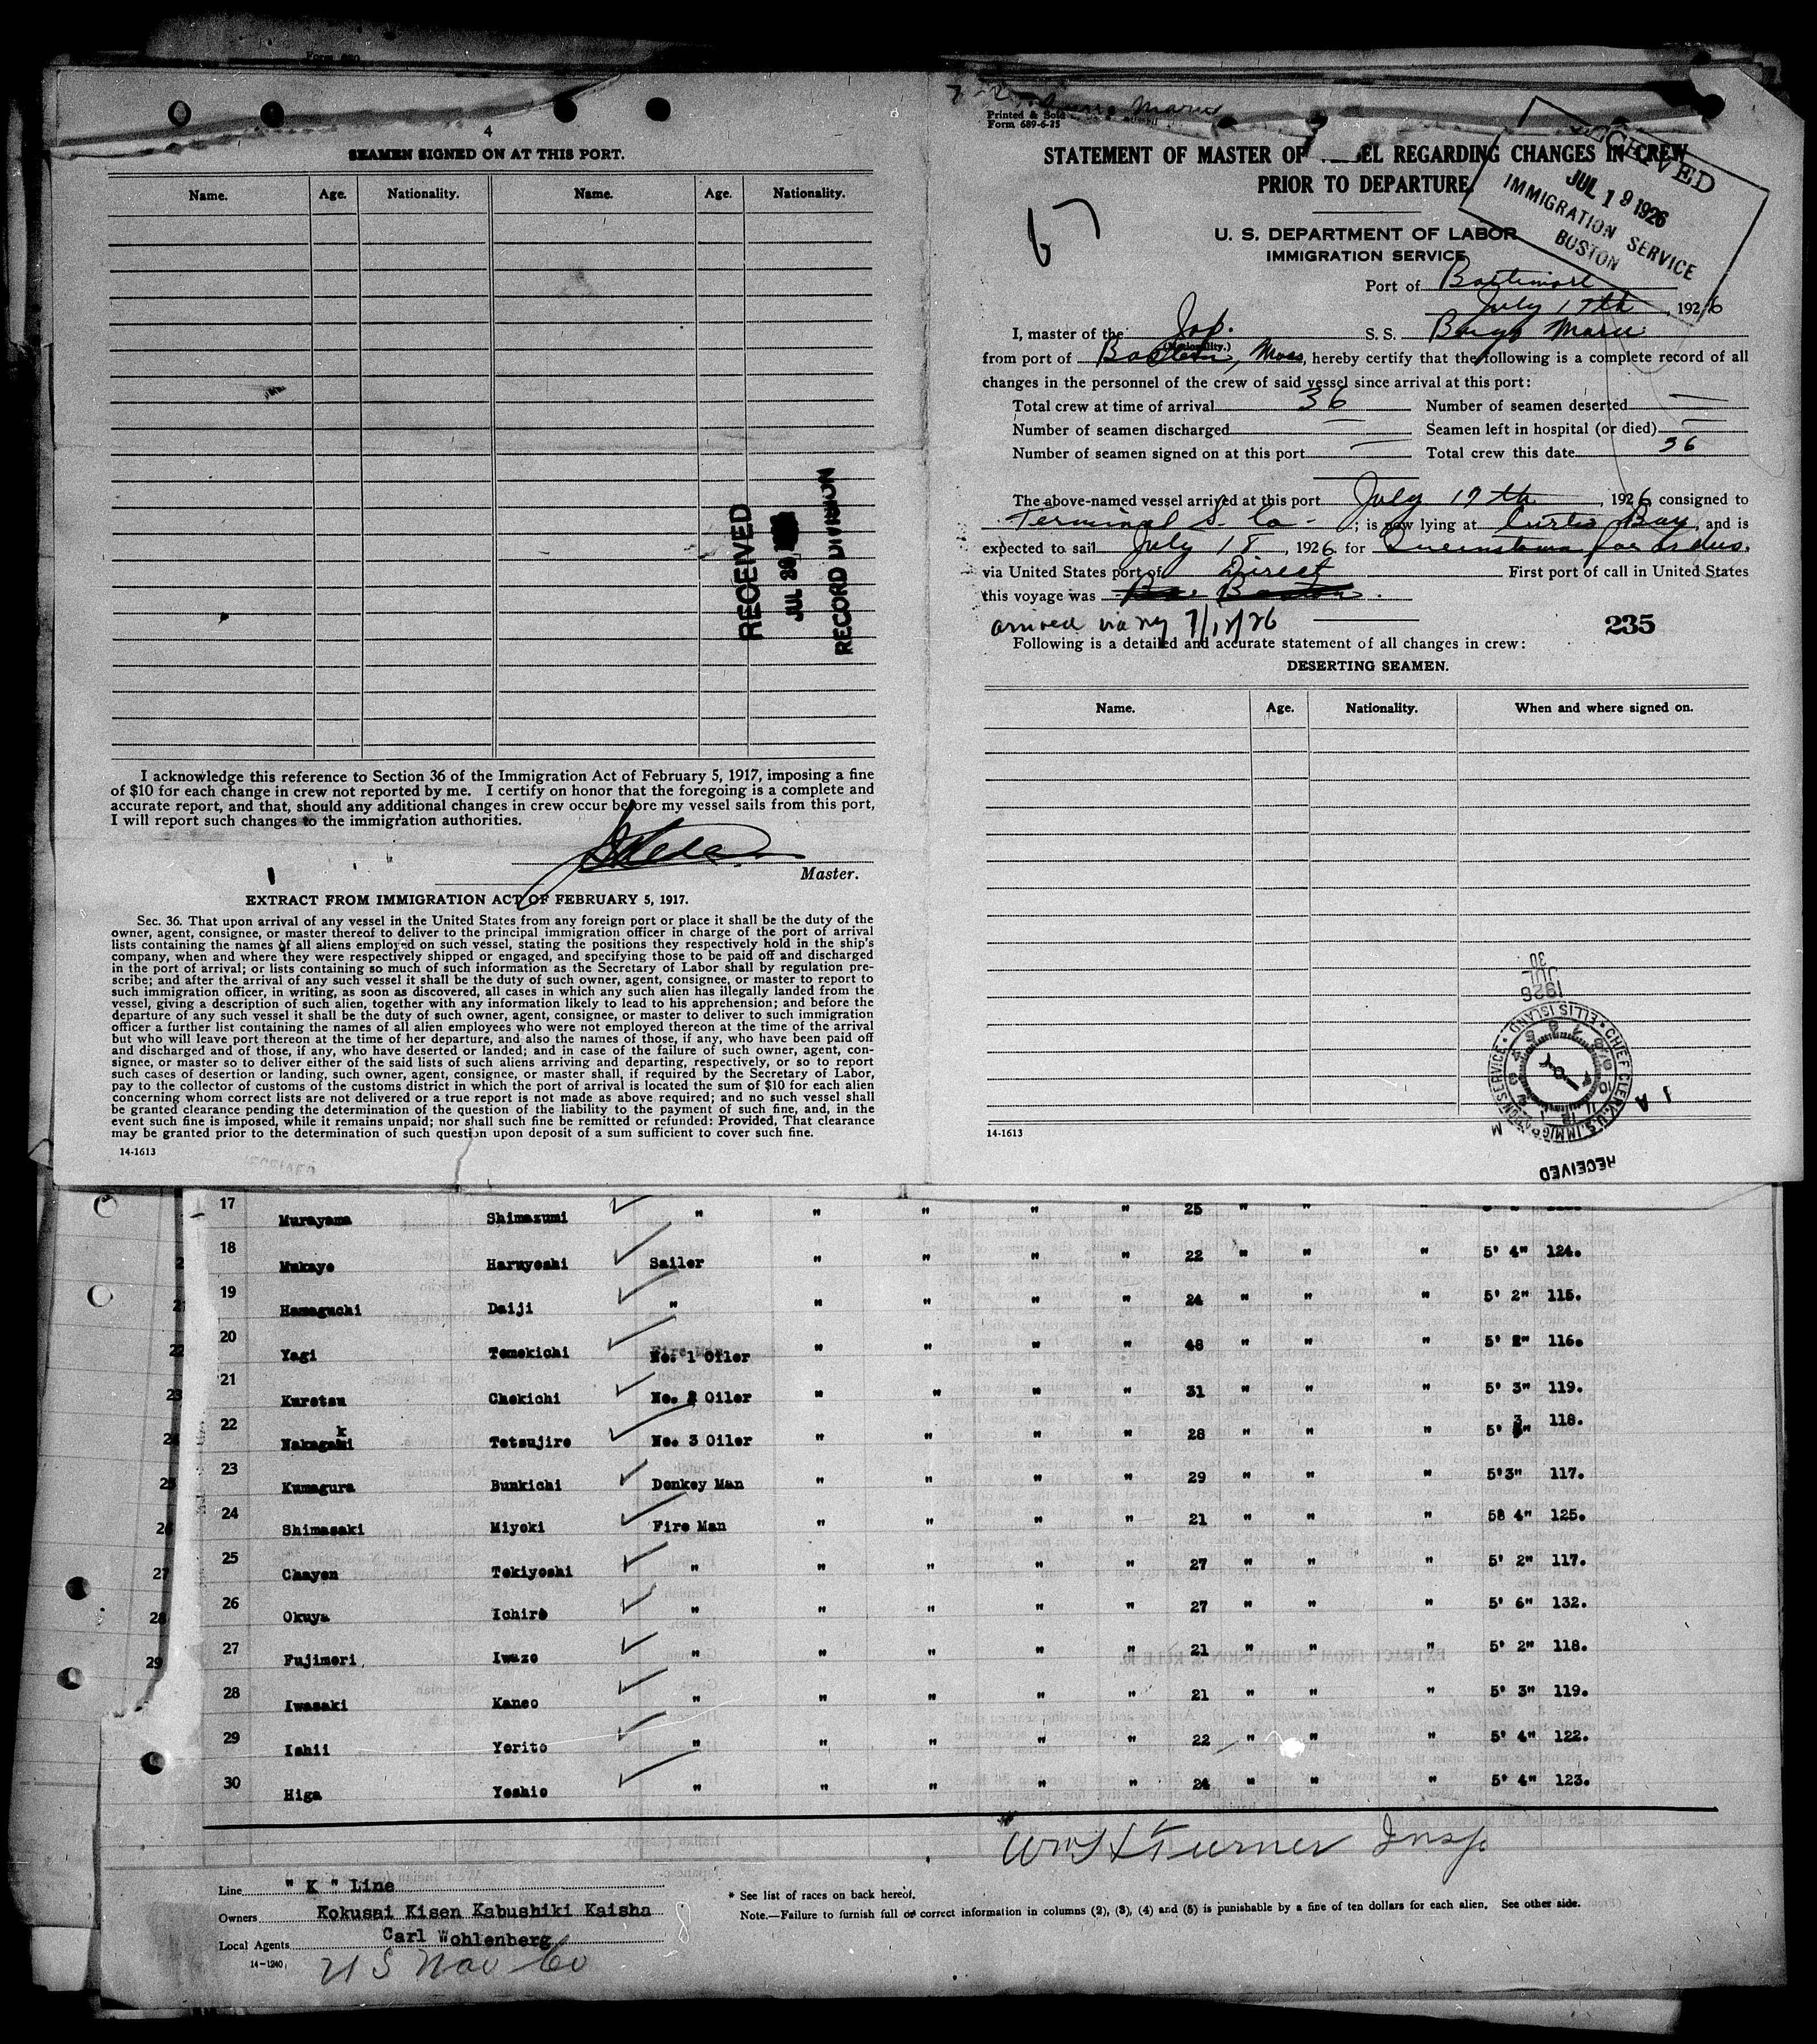 4
SEAMEN SIGNED ON AT THIS PORT.
Name. Age. Nationality. Name. Age. Nationality.
RECEIVED
JUL
RECORD DIVISION
I acknowledge this reference to Section 36 of the Immigration Act of February 5, 1917, imposing a fine
of $10 for each change in crew not reported by me. I certify on honor that the foregoing is a complete and
accurate report, and that, should any additional changes in crew occur before my vessel sails from this port,
I will report such changes to the immigration authorities.
Master.
EXTRACT FROM IMMIGRATION ACT OF FEBRUARY 5, 1917.
Sec. 36. That upon arrival of any vessel in the United States from any foreign port or place it shall be the duty of the
owner, agent, consignee, or master thereof to deliver to the principal immigration officer in charge of the port of arrival
lists containing the names of all aliens employed on such vessel, stating the positions they respectively hold in the ship's
company, when and where they were respectively shipped or engaged, and specifying those to be paid off and discharged
in the port of arrival; or lists containing so much of such information as the Secretary of Labor shall by regulation pre-
scribe; and after the arrival of any such vessel it shall be the duty of such owner, agent, consignee, or master to report to
such immigration officer, in writing, as soon as discovered, all cases in which any such alien has illegally landed from the
vessel, giving a description of such alien, together with any information likely to lead to his apprehension; and before the
departure of any such vessel it shall be the duty of such owner, agent, consignee, or master to deliver to such immigration
officer a further list containing the names of all alien employees who were not employed thereon at the time of the arrival
but who will leave port thereon at the time of her departure, and also the names of those, if any, who have been paid off
and discharged and of those, if any, who have deserted or landed; and in case of the failure of such owner, agent, con-
signee, or master so to deliver either of the said lists of such aliens arriving and departing, respectively, or so to report
such cases of desertion or landing, such owner, agent, consignee, or master shall, if required by the Secretary of Labor,
pay to the collector of customs of the customs district in which the port of arrival is located the sum of $10 for each alien
concerning whom correct lists are not delivered or a true report is not made as above required; and no such vessel shall
be granted clearance pending the determination of the question of the liability to the payment of such fine, and, in the
event such fine is imposed, while it remains unpaid; nor shall such fine be remitted or refunded: Provided, That clearance
may be granted prior to the determination of such question upon deposit of a sum sufficient to cover such fine.
14-1613
Printed & Sold
Form 689-6-25
STATEMENT OF MASTER OF VESSEL REGARDING CHANGES IN CREW
PRIOR TO DEPARTURE.
RECEIVED
JUL 19 1926
IMMIGRATION SERVICE
BOSTON
U. S. DEPARTMENT OF LABOR
IMMIGRATION SERVICE
Port of Baltimore
July 17th, 1926
I, master of the Jap. S. S. Bingo Maru
(Nationality.)
from port of Boston, Mass, hereby certify that the following is a complete record of all
changes in the personnel of the crew of said vessel since arrival at this port:
Total crew at time of arrival 36 Number of seamen deserted —
Number of seamen discharged — Seamen left in hospital (or died) —
Number of seamen signed on at this port — Total crew this date 36
The above-named vessel arrived at this port July 17th, 1926 consigned to
Terminal S. Co. ; is now lying at Curtis Bay, and is
expected to sail July 18, 1926 for Queenstown for orders.
via United States port of Direct First port of call in United States
this voyage was Boston.
arrived via NY 7/12/26
235
Following is a detailed and accurate statement of all changes in crew:
DESERTING SEAMEN.
Name. Age. Nationality. When and where signed on.
1926
JUL
30
CHIEF CLERK, U.S. IMMIGRATION SERVICE • ELLIS ISLAND •
RECEIVED
14-1613
17 Murayama Shimazumi " " " " " 25 " " "
18 Mukayo Haruyoshi Sailor " " " " 22 " " " 5' 4" 124.
19 Hamaguchi Daiji " " " " " 24 " " " 5' 2" 115.
20 Yagi Tomokichi No. 1 Oiler " " " " 48 " " " 5' 2" 116.
21 Kuretsu Chokichi No. 2 Oiler " " " " 31 " " " 5' 3" 119.
22 Nakagaki Totsujiro No. 3 Oiler " " " " 28 " " " 5' 3" 118.
23 Kumagura Bunkichi Donkey Man " " " " 29 " " " 5'3" 117.
24 Shimasaki Miyoki Fire Man " " " " 21 " " " 58 4" 125.
25 Chayen Tokiyoshi " " " " " 27 " " " 5' 2" 117.
26 Okuya Ichiro " " " " " 27 " " " 5' 6" 132.
27 Fujimori Iwazo " " " " " 21 " " " 5' 2" 118.
28 Iwasaki Kaneo " " " " " 21 " " " 5' 3" 119.
29 Ishii Yorito " " " " " 22 " " " 5' 4" 122.
30 Higa Yoshio " " " " " 24 " " " 5' 4" 123.
Wm H Turner Insp.
Line " K " Line
Owners Kokusai Kisen Kabushiki Kaisha
Local Agents Carl Wohlenberg
14-1240
U S Nav Co
* See list of races on back hereof.
Note.—Failure to furnish full or correct information in columns (2), (3), (4) and (5) is punishable by a fine of ten dollars for each alien. See other side.